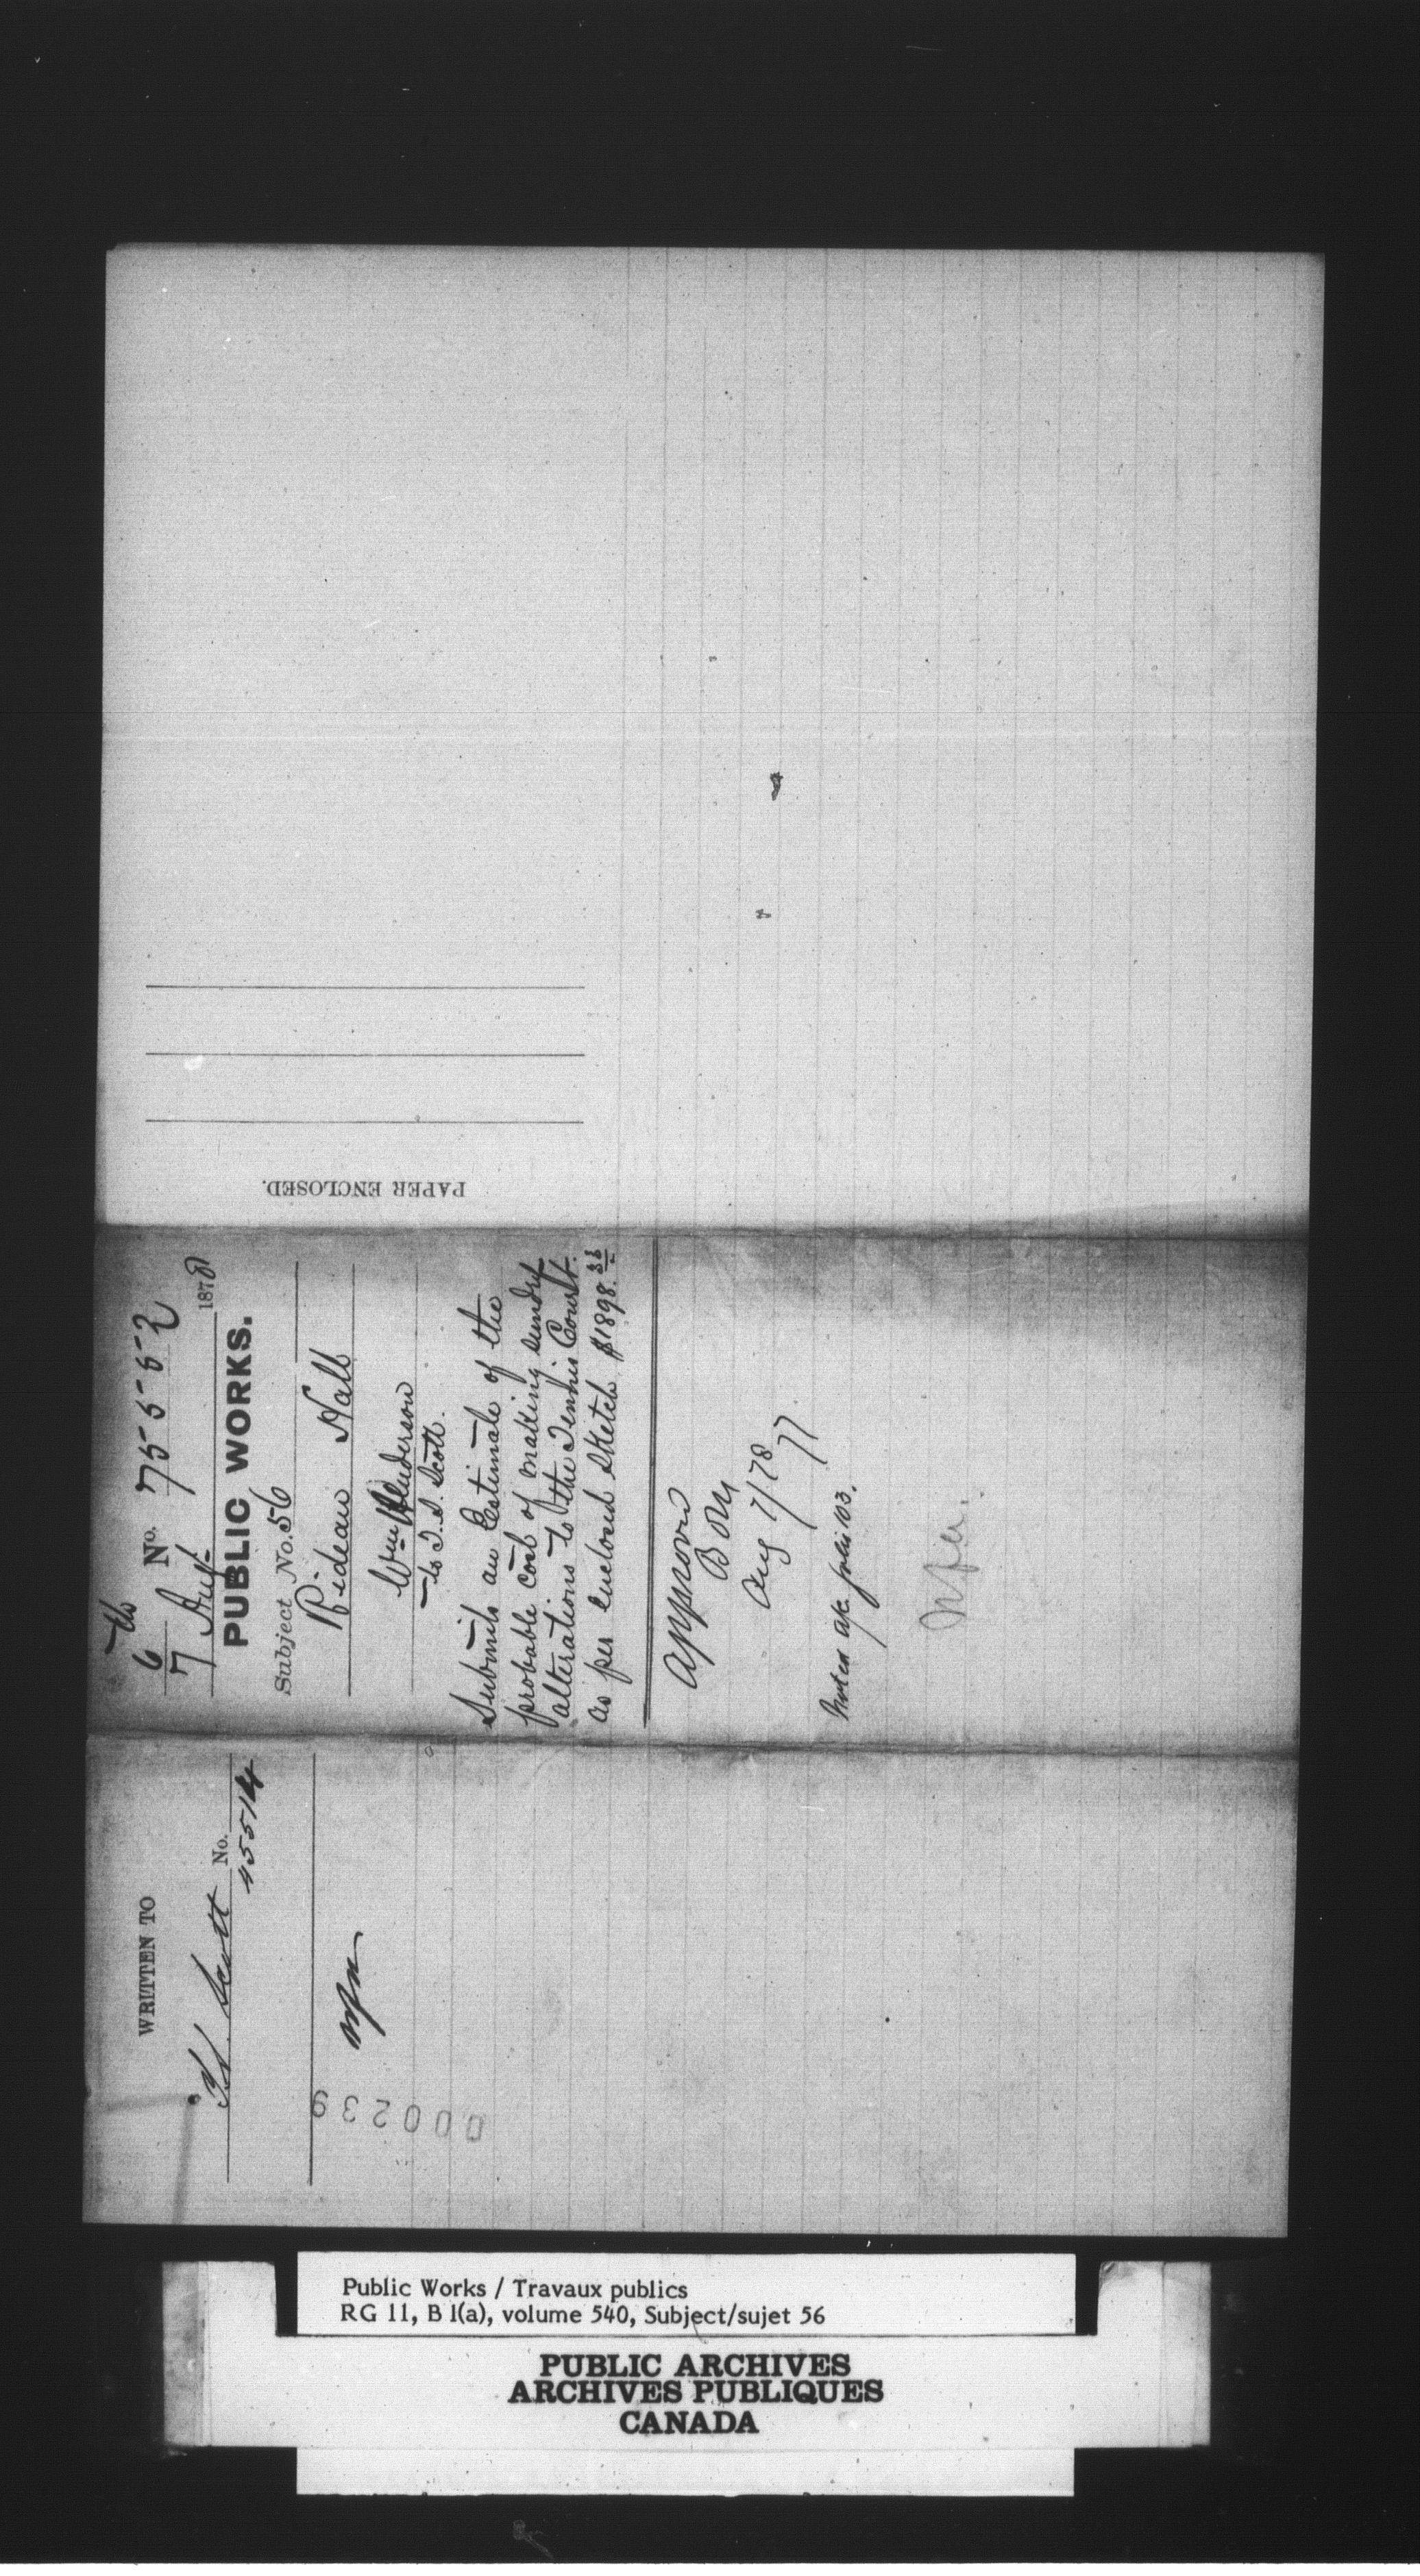 PAPER ENCLOSED.
6th
7 No. 75552
Aug. 1878
PUBLIC WORKS.
Subject No. 56
Rideau Hall
Wm Anderson
to T. S. Scott.
Submits an Estimate of the
probable cost of making sundry
alterations to the Tennis Court.
as per enclosed sketch $1898.36
Approved
Aug 7/78
77
Noted folio 103.
WRITTEN TO
T.S. Scott No.
45514
000239
Public Works / Travaux publics
RG 11, B 1(a), volume 540, Subject/sujet 56
PUBLIC ARCHIVES
ARCHIVES PUBLIQUES
CANADA